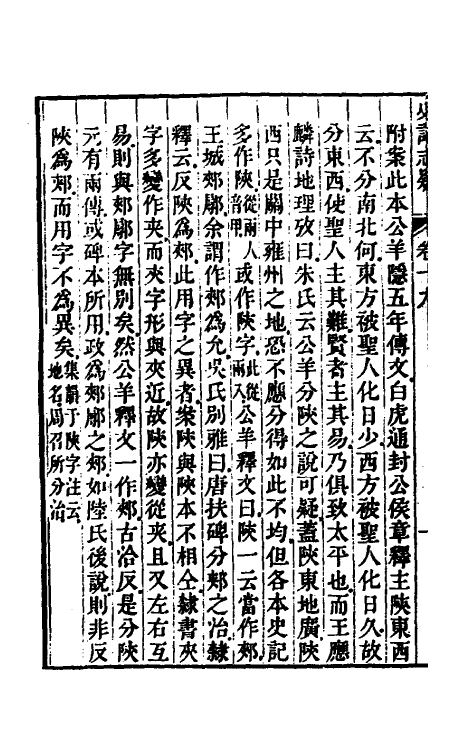 史記志疑　卷十九　一
附案此本公羊隱五年傳文白虎通封公侯章釋主陝東西
云不分南北何東方被聖人化日少西方被聖人化日久故
分東西使聖人主其難賢者主其易乃俱致太平也而王應
麟詩地理攷曰朱氏云公羊分陝之說可疑蓋陝東地廣陝
西只是關中雍州之地恐不應分得如此不均但各本史記
多作陝從兩人音甲或作陝字此從兩入公羊釋文曰陝一云當作郟
王城郟鄏余謂作郟爲允吳氏別雅曰唐扶碑分郟之治隸
釋云反陝爲郟此用字之異者案陝與陝本不相仝隸書夾
字多變作夹而夾字形與夾近故陝亦變從夾且又左右互
易則與郟鄏字無別矣然公羊釋文一作郟古洽反是分陝
元有兩傳或碑本所用政爲郟鄏之郟如陸氏後說則非反
陝爲郟而用字不爲異矣集韻于陝字注云地名周召所分治